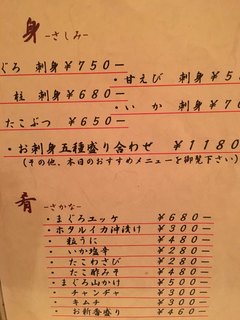 身 -さしみ-
ぐろ 刺身 ¥750-
・甘えび 刺身 ¥5
柱 刺身 ¥680-
・いか 刺身 ¥70
たこぶつ ¥650-
・お刺身五種盛り合わせ ¥1180
(その他、本日のおすすめメニューを御覧下さい)
肴 -さかな-
・まぐろユッケ ¥680-
・ホタルイカ沖漬け ¥300-
・粒うに ¥480-
・いか塩辛 ¥280-
・たこわさび ¥280-
・たこ酢みそ ¥480-
・まぐろ山かけ ¥500-
・チャンヂャ ¥300-
・キムチ ¥300-
・お新香盛り ¥460-